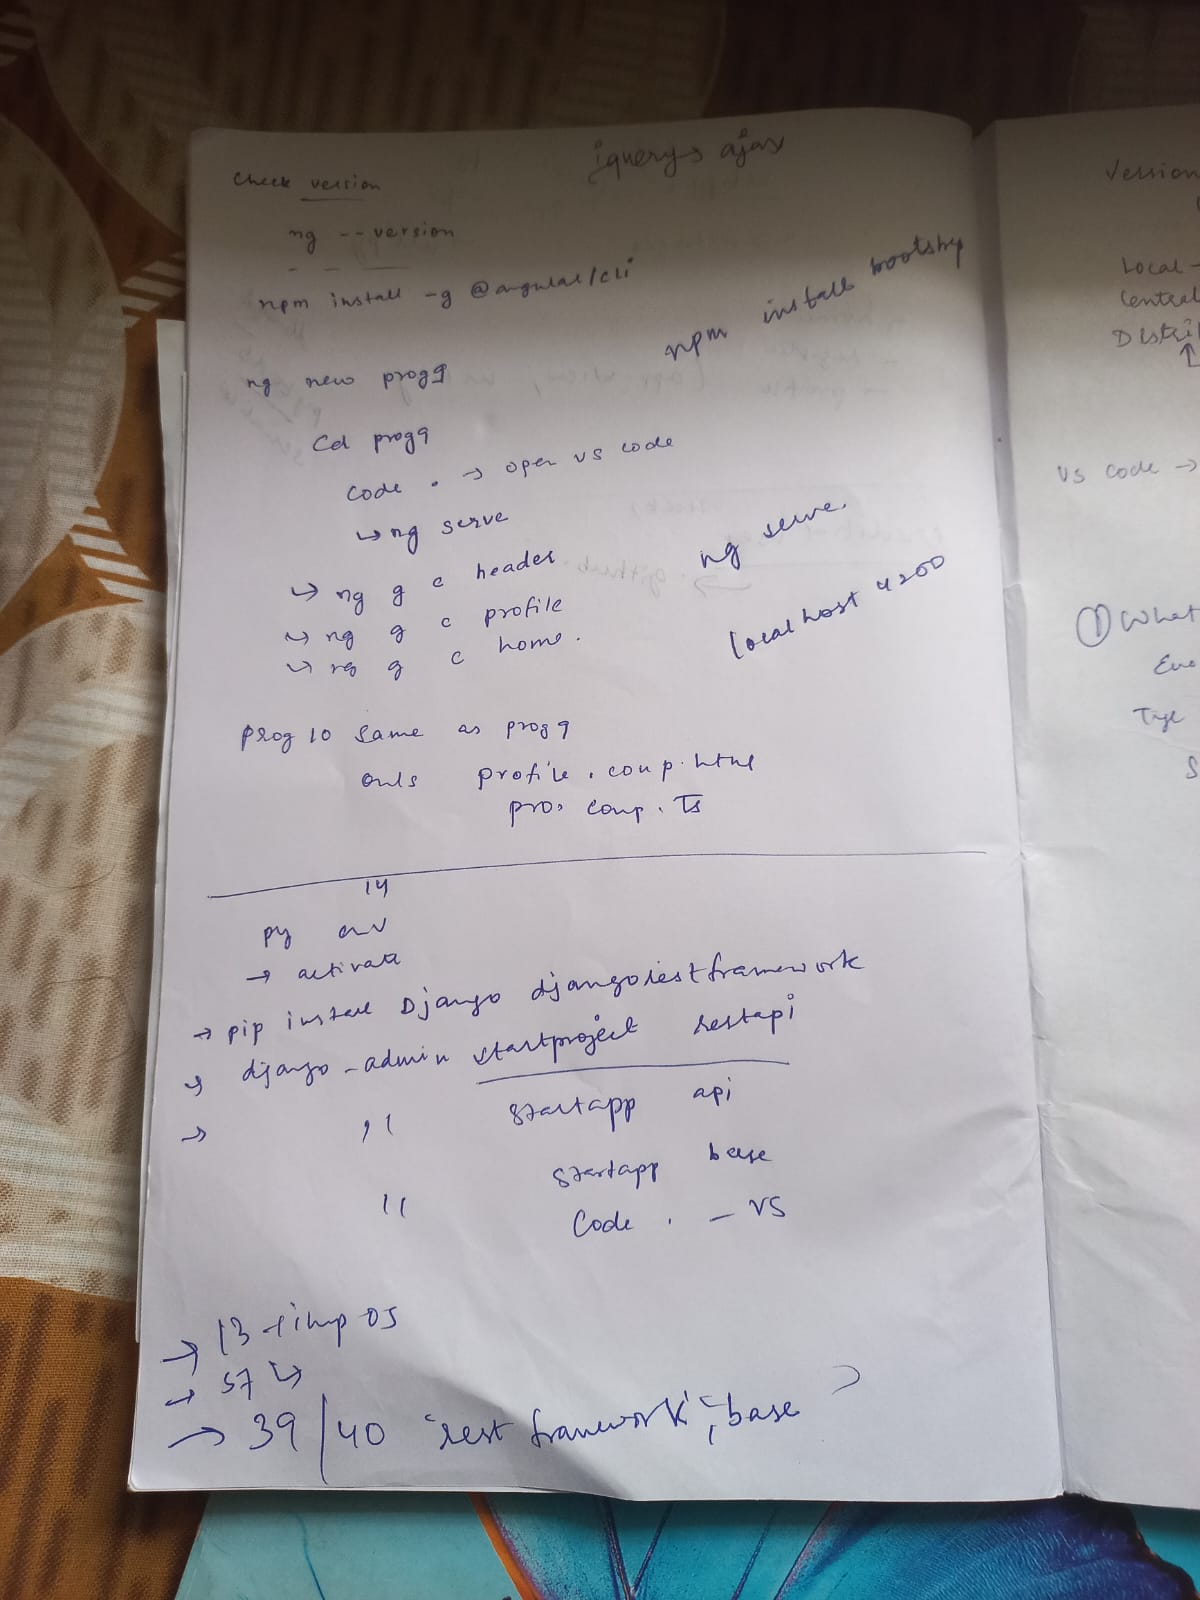 jquery → ajax
Check version
ng --version
npm install -g @angular/cli
npm install bootstrp
ng new prog9
Cd prog9
Code . → open vs code
↳ ng serve
ng serve.
→ ng g c header
→ ng g c profile
→ ng g c home.
localhost 4200
Prog 10 same as prog 9
profile . comp . html
pro. comp . Ts
14
py env
→ activate
→ pip install Django djangorestframework
→ django-admin startproject restapi
→ " startapp api
startapp base
" Code . – VS
→ 13 + imp os
→ 57 ↳
→ 39/40 'rest framework', 'base'
Version
Local -
Central
Distri
↑
VS code →
① What
Type
S